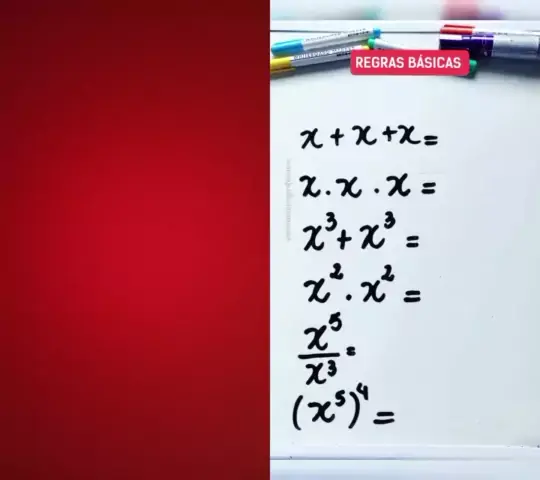 REGRAS BÁSICAS
x + x + x =
x . x . x =
x³ + x³ =
x² . x² =
x⁵
x³ =
(x⁵)⁴ =